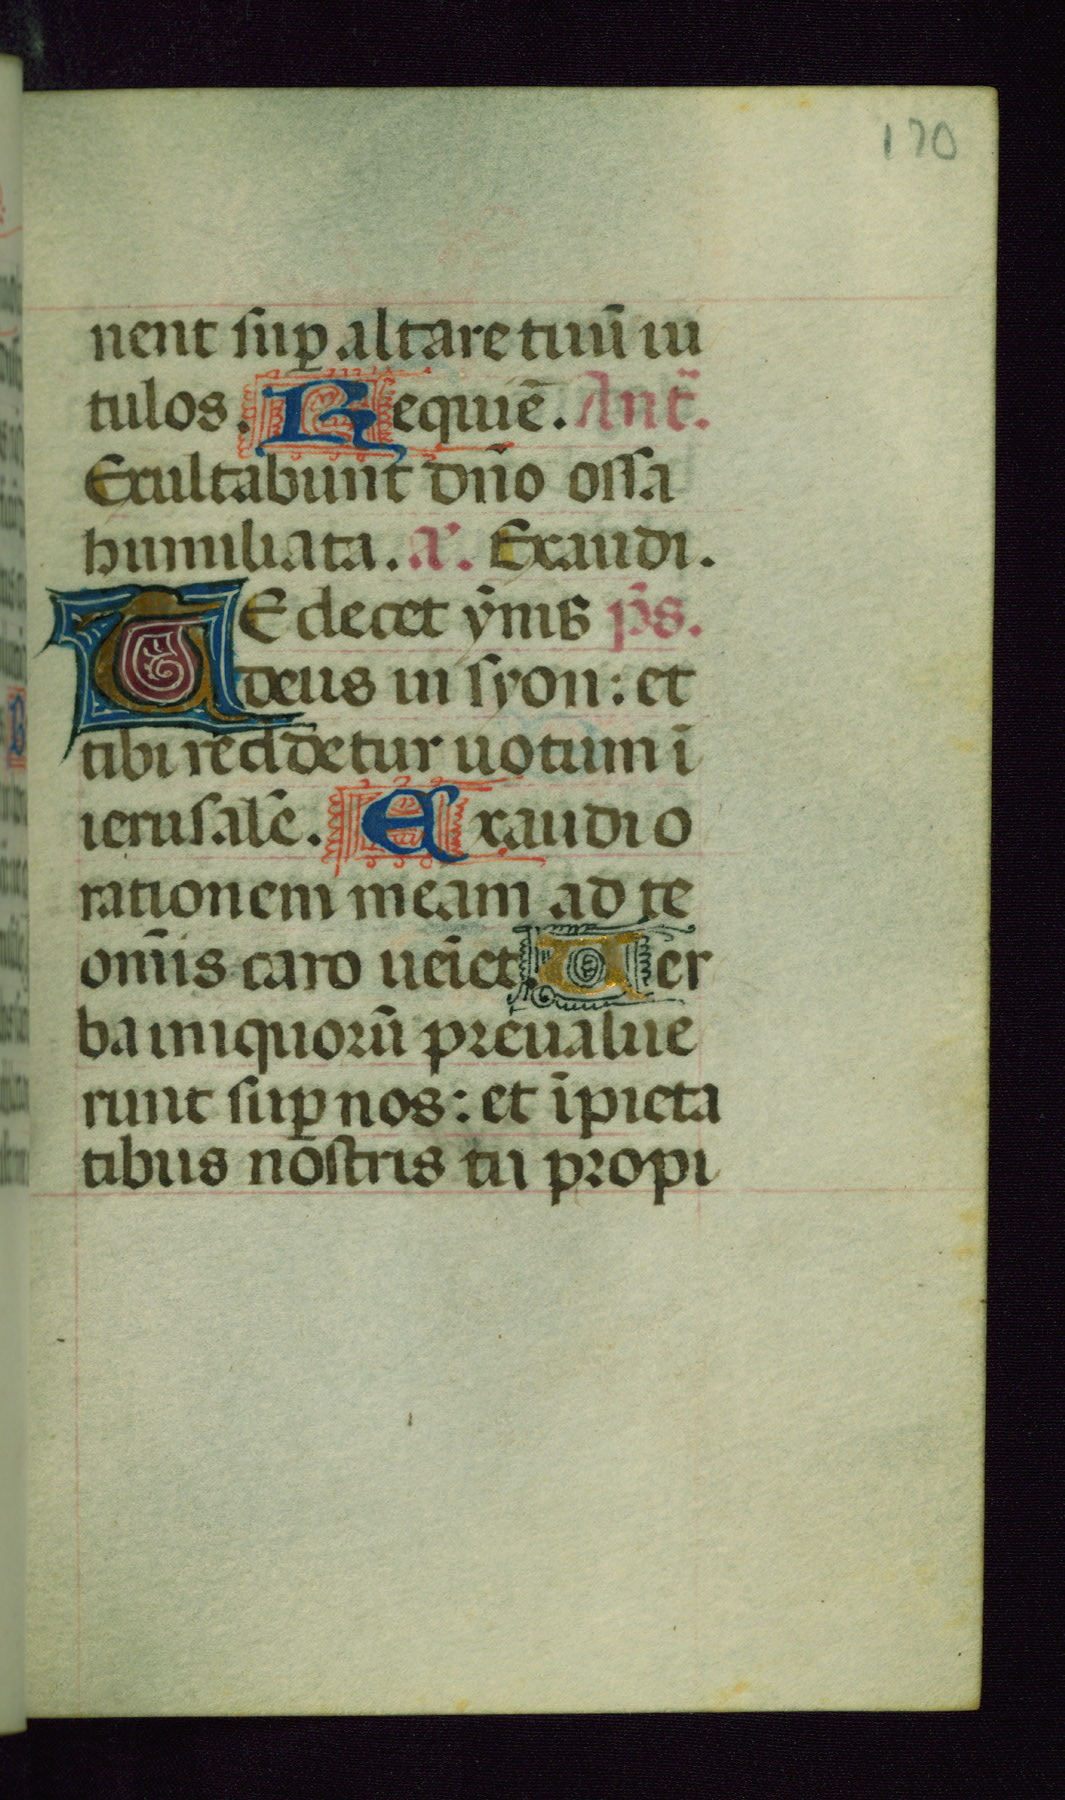 170
nent sup̱ altare tuū uı
tulos. Requiē. Ant̃.
Exultabunt dn̄o ossa
humiliata. a᷑. Exaudi.
TE decet ȳnus p̄s.
deus in syon: et
tibi reddetur uotum ī
ierusalē. Exaudi o
rationem meam ad te
om̄is caro ueīet. Uer
ba iniquorū preualue
runt sup̱ nos: et īpieta
tibus nostris tu propi